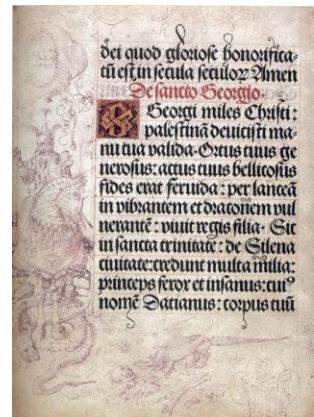 dei quod gloriose honorifica-
tū est, in secula seculoꝝ Amen
De sancto Georgio.
Georgi miles Christi:
palestinā deuicisti ma-
nu tua valida. Ortus tuus ge
nerosus: actus tuus bellicosus
fides erat feruida: per lanceā
in vibrantem et draconem vul
nerantē: viuit regis filia. Sit
in sancta trinitate: de Silena
ciuitate: credunt multa milia:
princeps ferox et insanus: cui⁹
nomē Datianus: corpus tuū